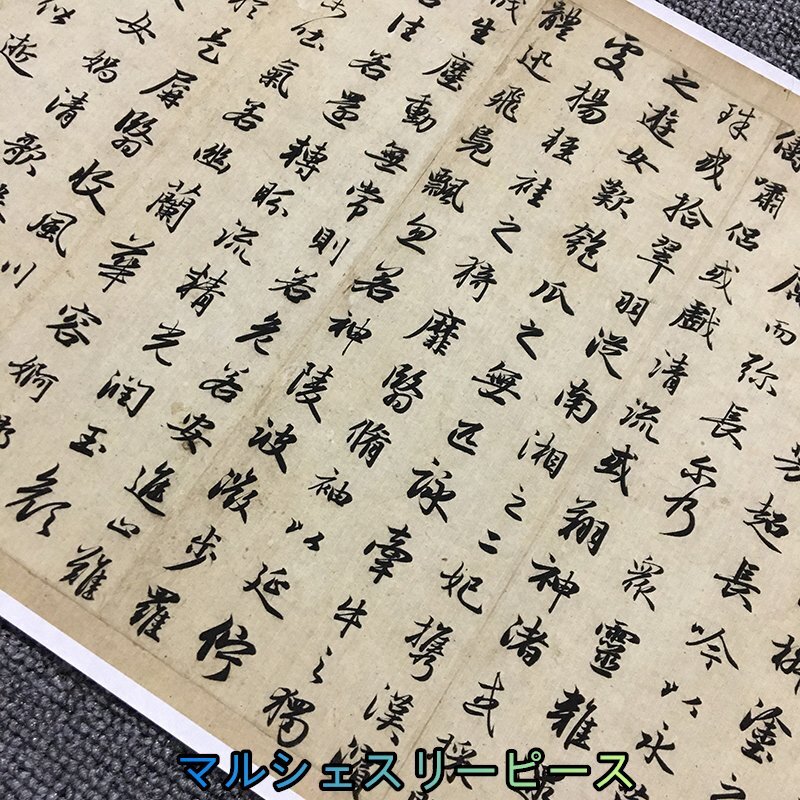 椒塗之
芳超長吟以永
厲而弥長尓乃衆靈雜
儔嘯侶或戲清流或翔神渚或採
珠或拾翠羽從南湘之二妃携漢濱
之遊女歎匏瓜之無匹詠牽牛之獨
處揚輕袿之猗靡翳脩袖以延佇
體迅飛鳧飄忽若神陵波微步羅
生塵動無常則若危若安進止難
若往若還轉眄流精光潤玉顔
吐氣若幽蘭華容婀
於是屏翳收風川
女媧清歌
逝
マルシェスリーピース